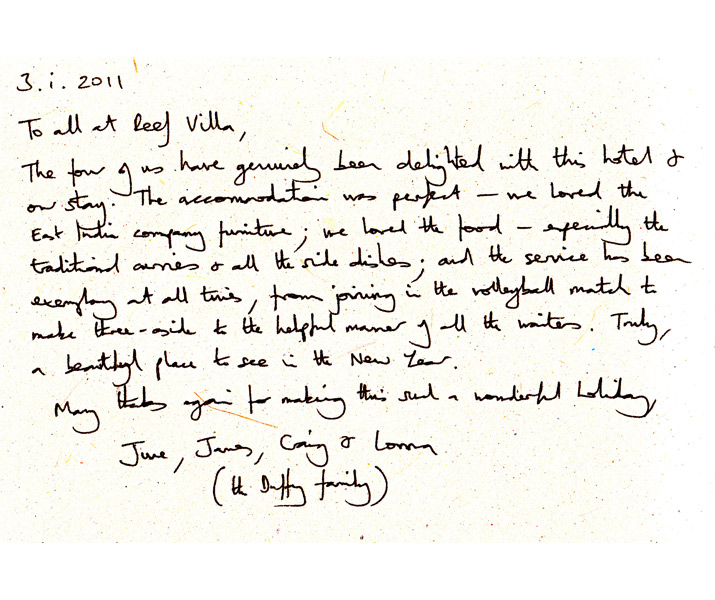 3.i.2011
To all at Reef Villa,
The four of us have genuinely been delighted with this hotel &
our stay. The accommodation was perfect — we loved the
East India company furniture; we loved the food — especially the
traditional curries & all the side dishes; and the service has been
exemplary at all times, from joining in the volleyball match to
make three-aside to the helpful manner of all the waiters. Truly,
a beautiful place to see in the New Year.
Many thanks again for making this such a wonderful holiday,
June, James, Craig & Lorna
(the Duffy family)